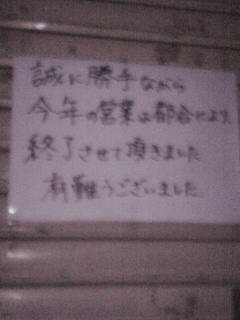 誠に勝手ながら
今年の営業は都合により
終了させて頂きました
有難うございました